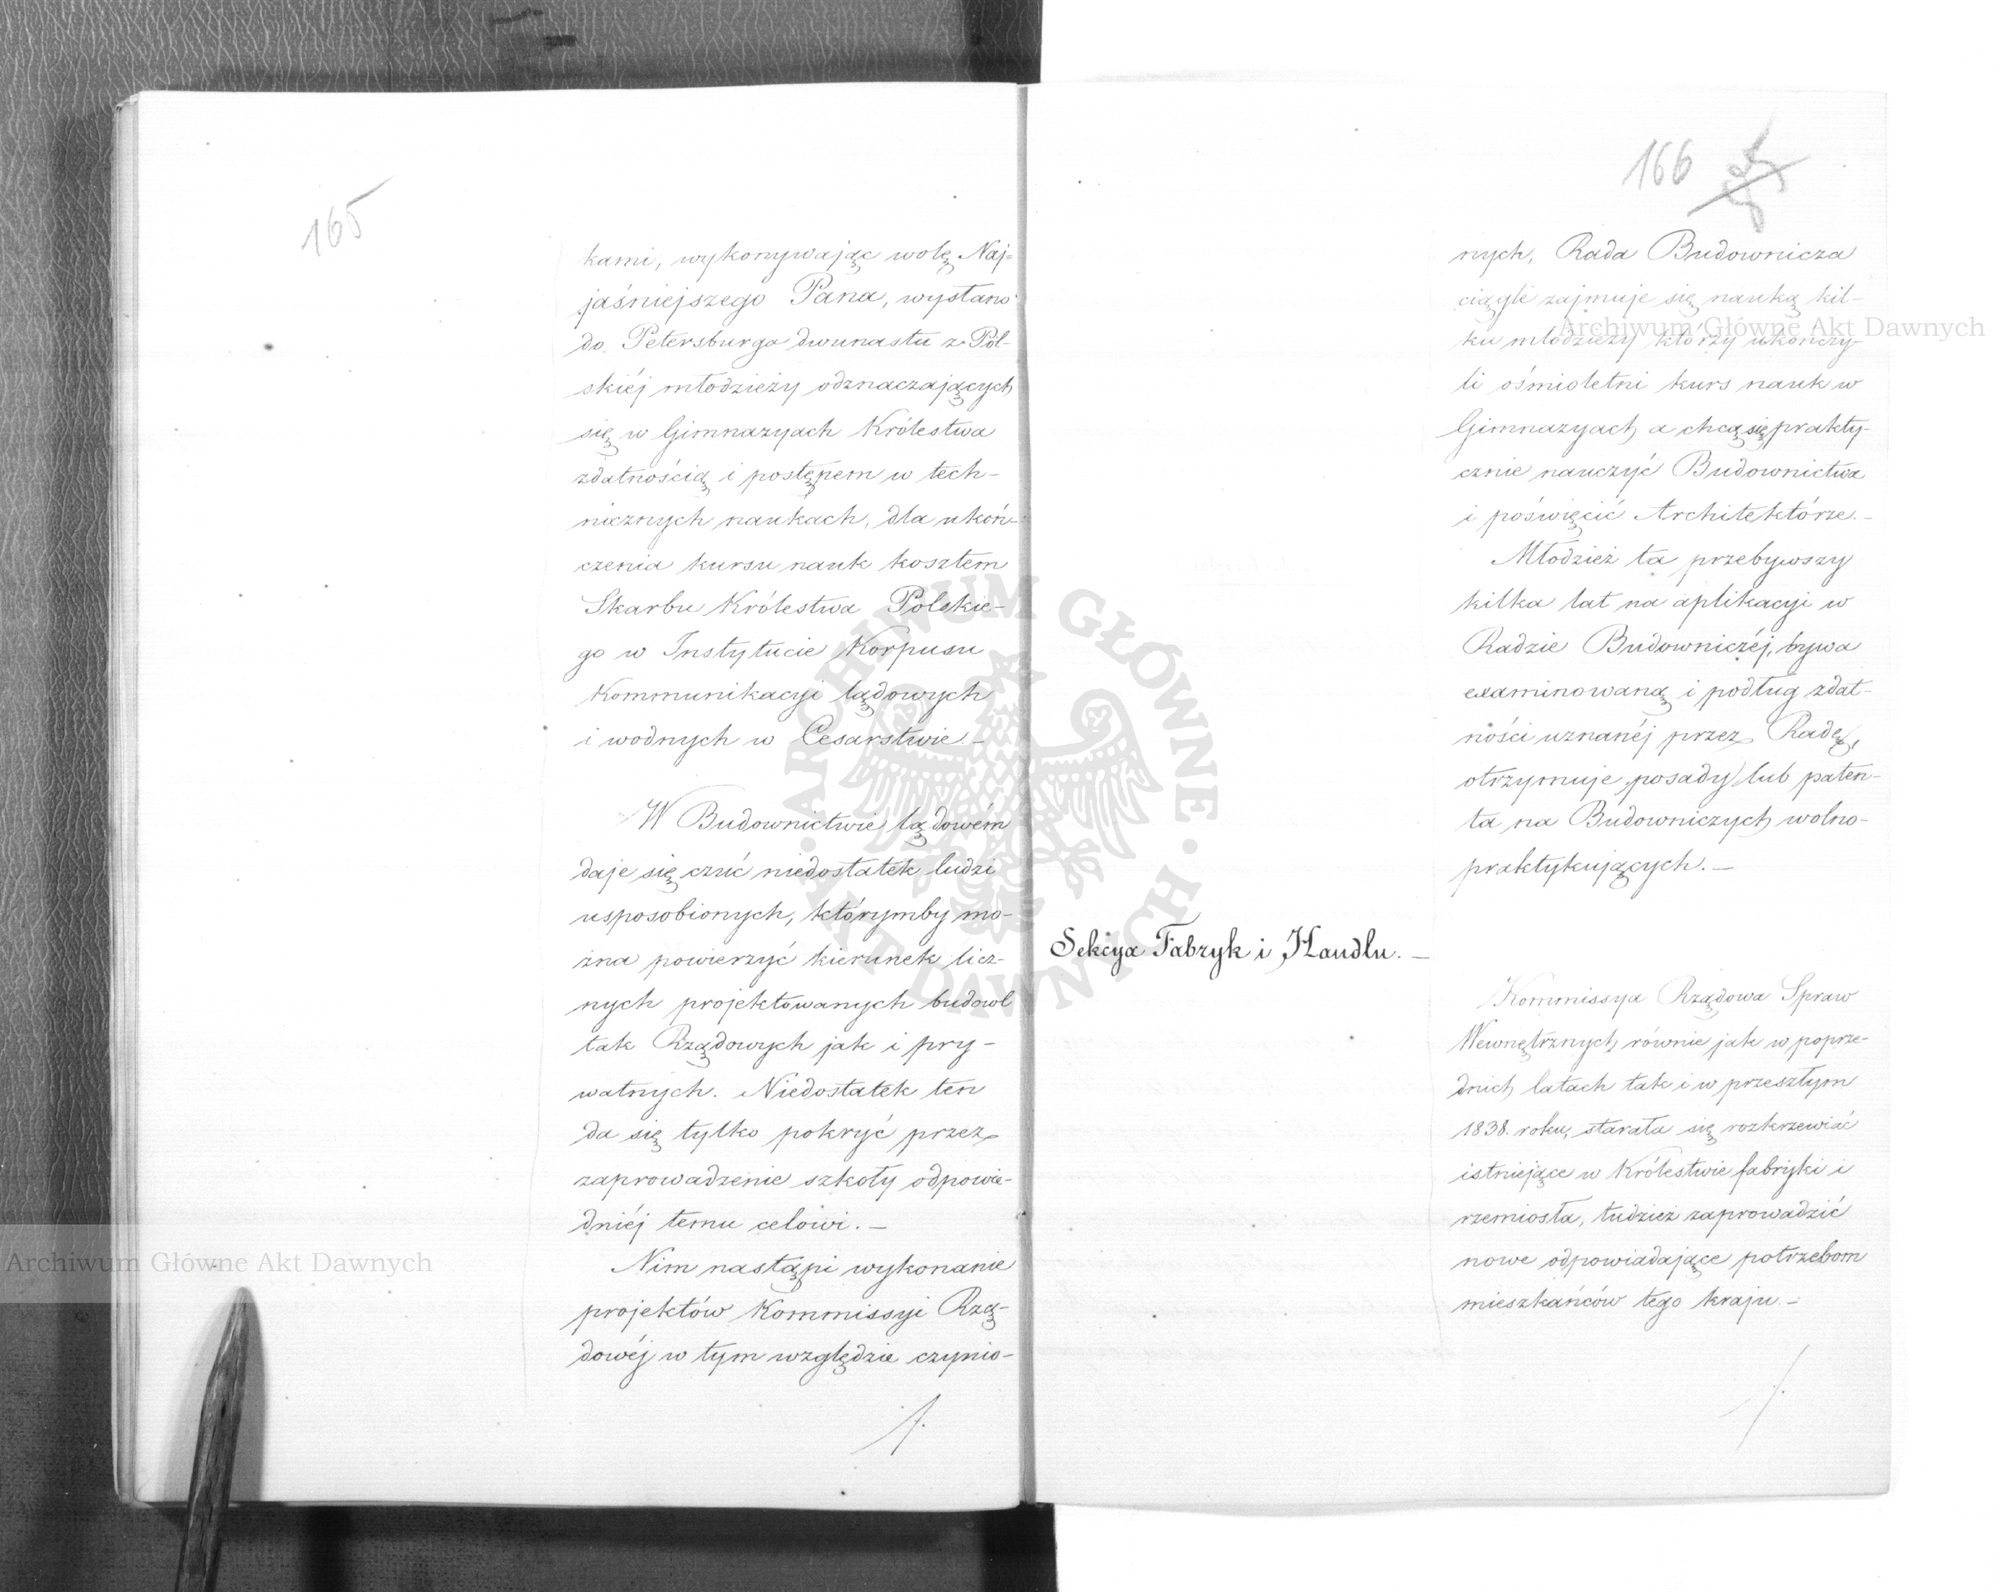 165
kami, wykonywając wolę Naj=
jaśniejszego Pana, wysłano
do Petersburga dwunastu z Pol-
skiéj młodzieży odznaczających
się w Gimnazyach Królestwa
zdatnością i postępem w tech-
nicznych naukach, dla ukoń-
czenia kursu nauk kosztem
Skarbu Królestwa Polskie-
go w Instytucie Korpusu
Kommunikacyi lądowych
i wodnych w Cesarstwie.-
W Budownictwie lądowém
daje się czuć niedostatek ludzi
usposobionych, którymby mo-
żna powierzyć kierunek licz-
nych projektowanych budowl
tak Rządowych jak i pry-
watnych. Niedostatek ten
da się tylko pokryć przez
zaprowadzenie szkoły odpowie-
dniéj temu celowi.-
Nim nastąpi wykonanie
projektów Kommissyi Rzą-
dowéj w tym względzie czynio-
166
nych, Rada Budownicza
ciągle zajmuje się nauką kil-
ku młodzieży, którzy ukończy-
li ośmioletni kurs nauk w
Gimnazyach a chcą się prakty-
cznie nauczyć Budownictwa
i poświęcić Architektórze.-
Młodzież ta przebywszy
kilka lat na aplikacyi w
Radzie Budowniczéj, bywa
examinowaną i podług zdat-
ności uznanéj przez Radę,
otrzymuje posady lub paten-
ta na Budowniczych wolno-
praktykujących.-
Sekcya Fabryk i Handlu.-
Kommissya Rządowa Spraw
Wewnętrznych równie jak w poprze-
dnich latach tak i w przeszłym
1838. roku, starała się rozkrzewiać
istniejące w Królestwie fabryki i
rzemiosła, tudzież zaprowadzić
nowe odpowiadające potrzebom
mieszkańców tego kraju.-
Archiwum Główne Akt Dawnych
Archiwum Główne Akt Dawnych
ARCHIWUM GŁÓWNE AKT DAWNYCH